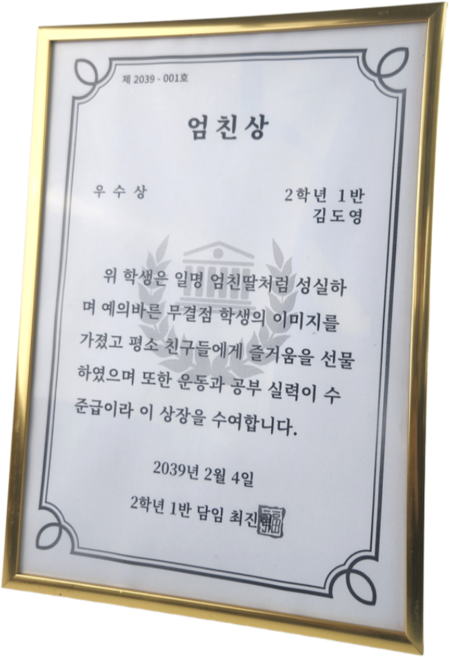 제 2039 - 001호
엄친상
우수상
2학년 1반
김도영
위 학생은 일명 엄친딸처럼 성실하
며 예의바른 무결점 학생의 이미지를
가졌고 평소 친구들에게 즐거움을 선물
하였으며 또한 운동과 공부 실력이 수
준급이라 이 상장을 수여합니다.
2039년 2월 4일
2학년 1반 담임